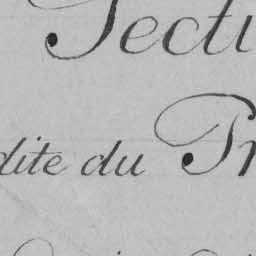 Secti
dite du Pr